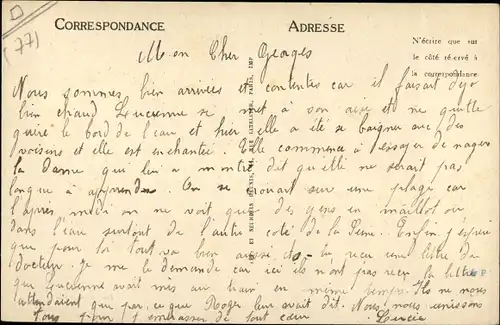 (77)
CORRESPONDANCE
ADRESSE
N'écrire que sur
le côté réservé à
la correspondance
Mon Cher Georges
Nous sommes bien arrivées et contentes car il faisait déjà
bien chaud Lucienne se met à son aise et ne quitte
guère le bord de l'eau et hier elle a été se baigner avec des
voisins et elle est enchantée. Elle commence à essayer de nager
la dame qui lui a montré dit qu'elle ne serait pas
longue à apprendre. On se croirait sur une plage car
l'après midi on ne voit que des gens en maillot ou
dans l'eau surtout de l'autre coté de la Seine. Enfin j'espère
que pour toi tout va bien aussi. As-tu reçu une lettre du
docteur. Je me le demande car ici ils n'ont pas reçu la lettre
que Lucienne avait mis au train en même temps. Ils ne nous
attendaient que par ce que Roger leur avait dit. Nous nous unissons
tous pour t'embrasser de tout cœur Lucie